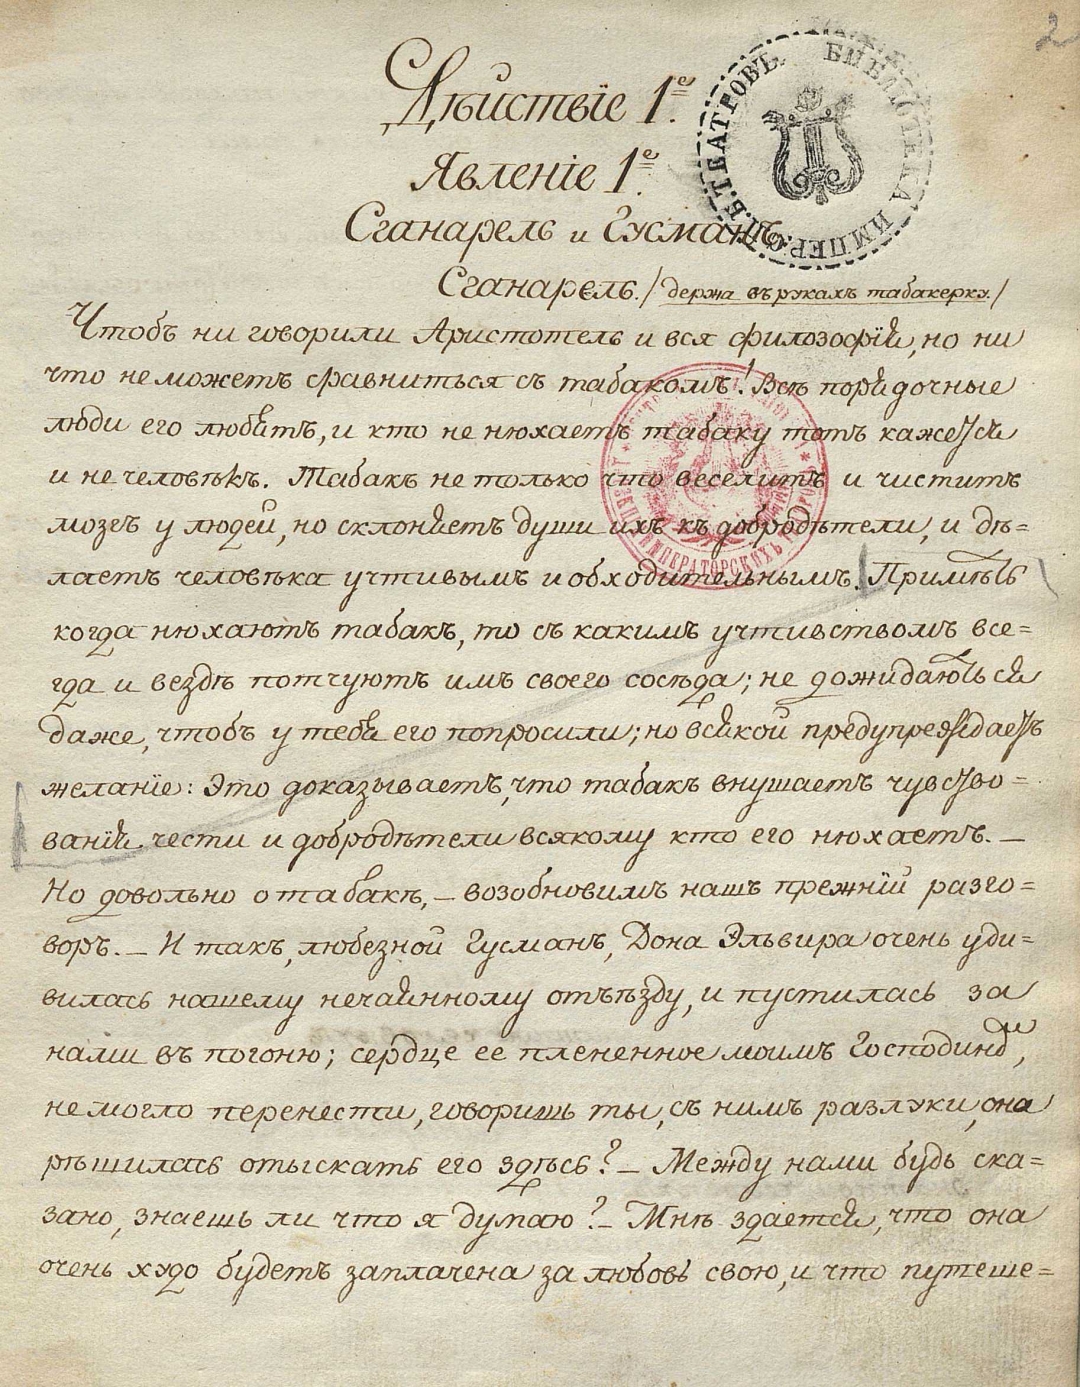 2
Дѣйствіе 1е.
Явленіе 1е.
БИБЛІОТЕКА ИМПЕР. С.П.Б. ТЕАТРОВЪ.
Сганарель и Гусманъ.
Сганарель. /держа въ рукахъ табакерку./
Чтобъ ни говорили Аристотель и вся философія, но ни
что не можетъ сравниться съ табакомъ! Всѣ порядочные
люди его любятъ, и кто не нюхаетъ табаку тотъ кажется
и не человѣкъ. Табакъ не только что веселитъ и чиститъ
мозгъ у людей, но склоняетъ души ихъ къ добродѣтели, и дѣ=
лаетъ человѣка учтивымъ и обходительнымъ. Примѣть
когда нюхаютъ табакъ, то съ какимъ учтивствомъ все=
гда и вездѣ потчуютъ имъ своего сосѣда; не дожидаються
даже, чтобъ у тебя его попросили; но всякой предупреждаетъ
желаніе: Это доказываетъ, что табакъ внушаетъ чувство=
ванія чести и добродѣтели всякому кто его нюхаетъ. —
Но довольно о табакѣ, — возобновимъ нашъ прежній разго=
воръ. — И такъ, любезной Гусманъ, Дона Эльвира очень уди=
вилась нашему нечаянному отъѣзду, и пустилась за
нами въ погоню; сердце ее плененное моимъ Господиномъ,
не могло перенести, говоришь ты, съ нимъ разлуки, она
рѣшилась отыскать его здѣсь? — Между нами будь ска=
зано, знаешь ли что я думаю? — Мнѣ здается, что она
очень худо будетъ заплачена за любовь свою, и что путеше=